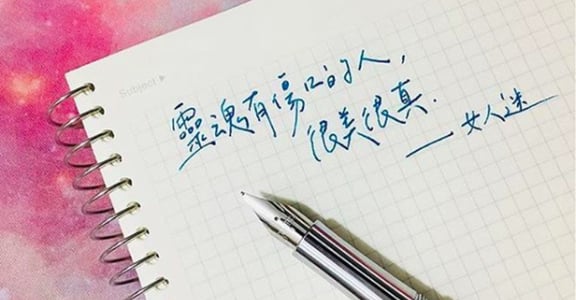 Subject ▶
靈魂有傷口的人，
很美很真．
—女人迷